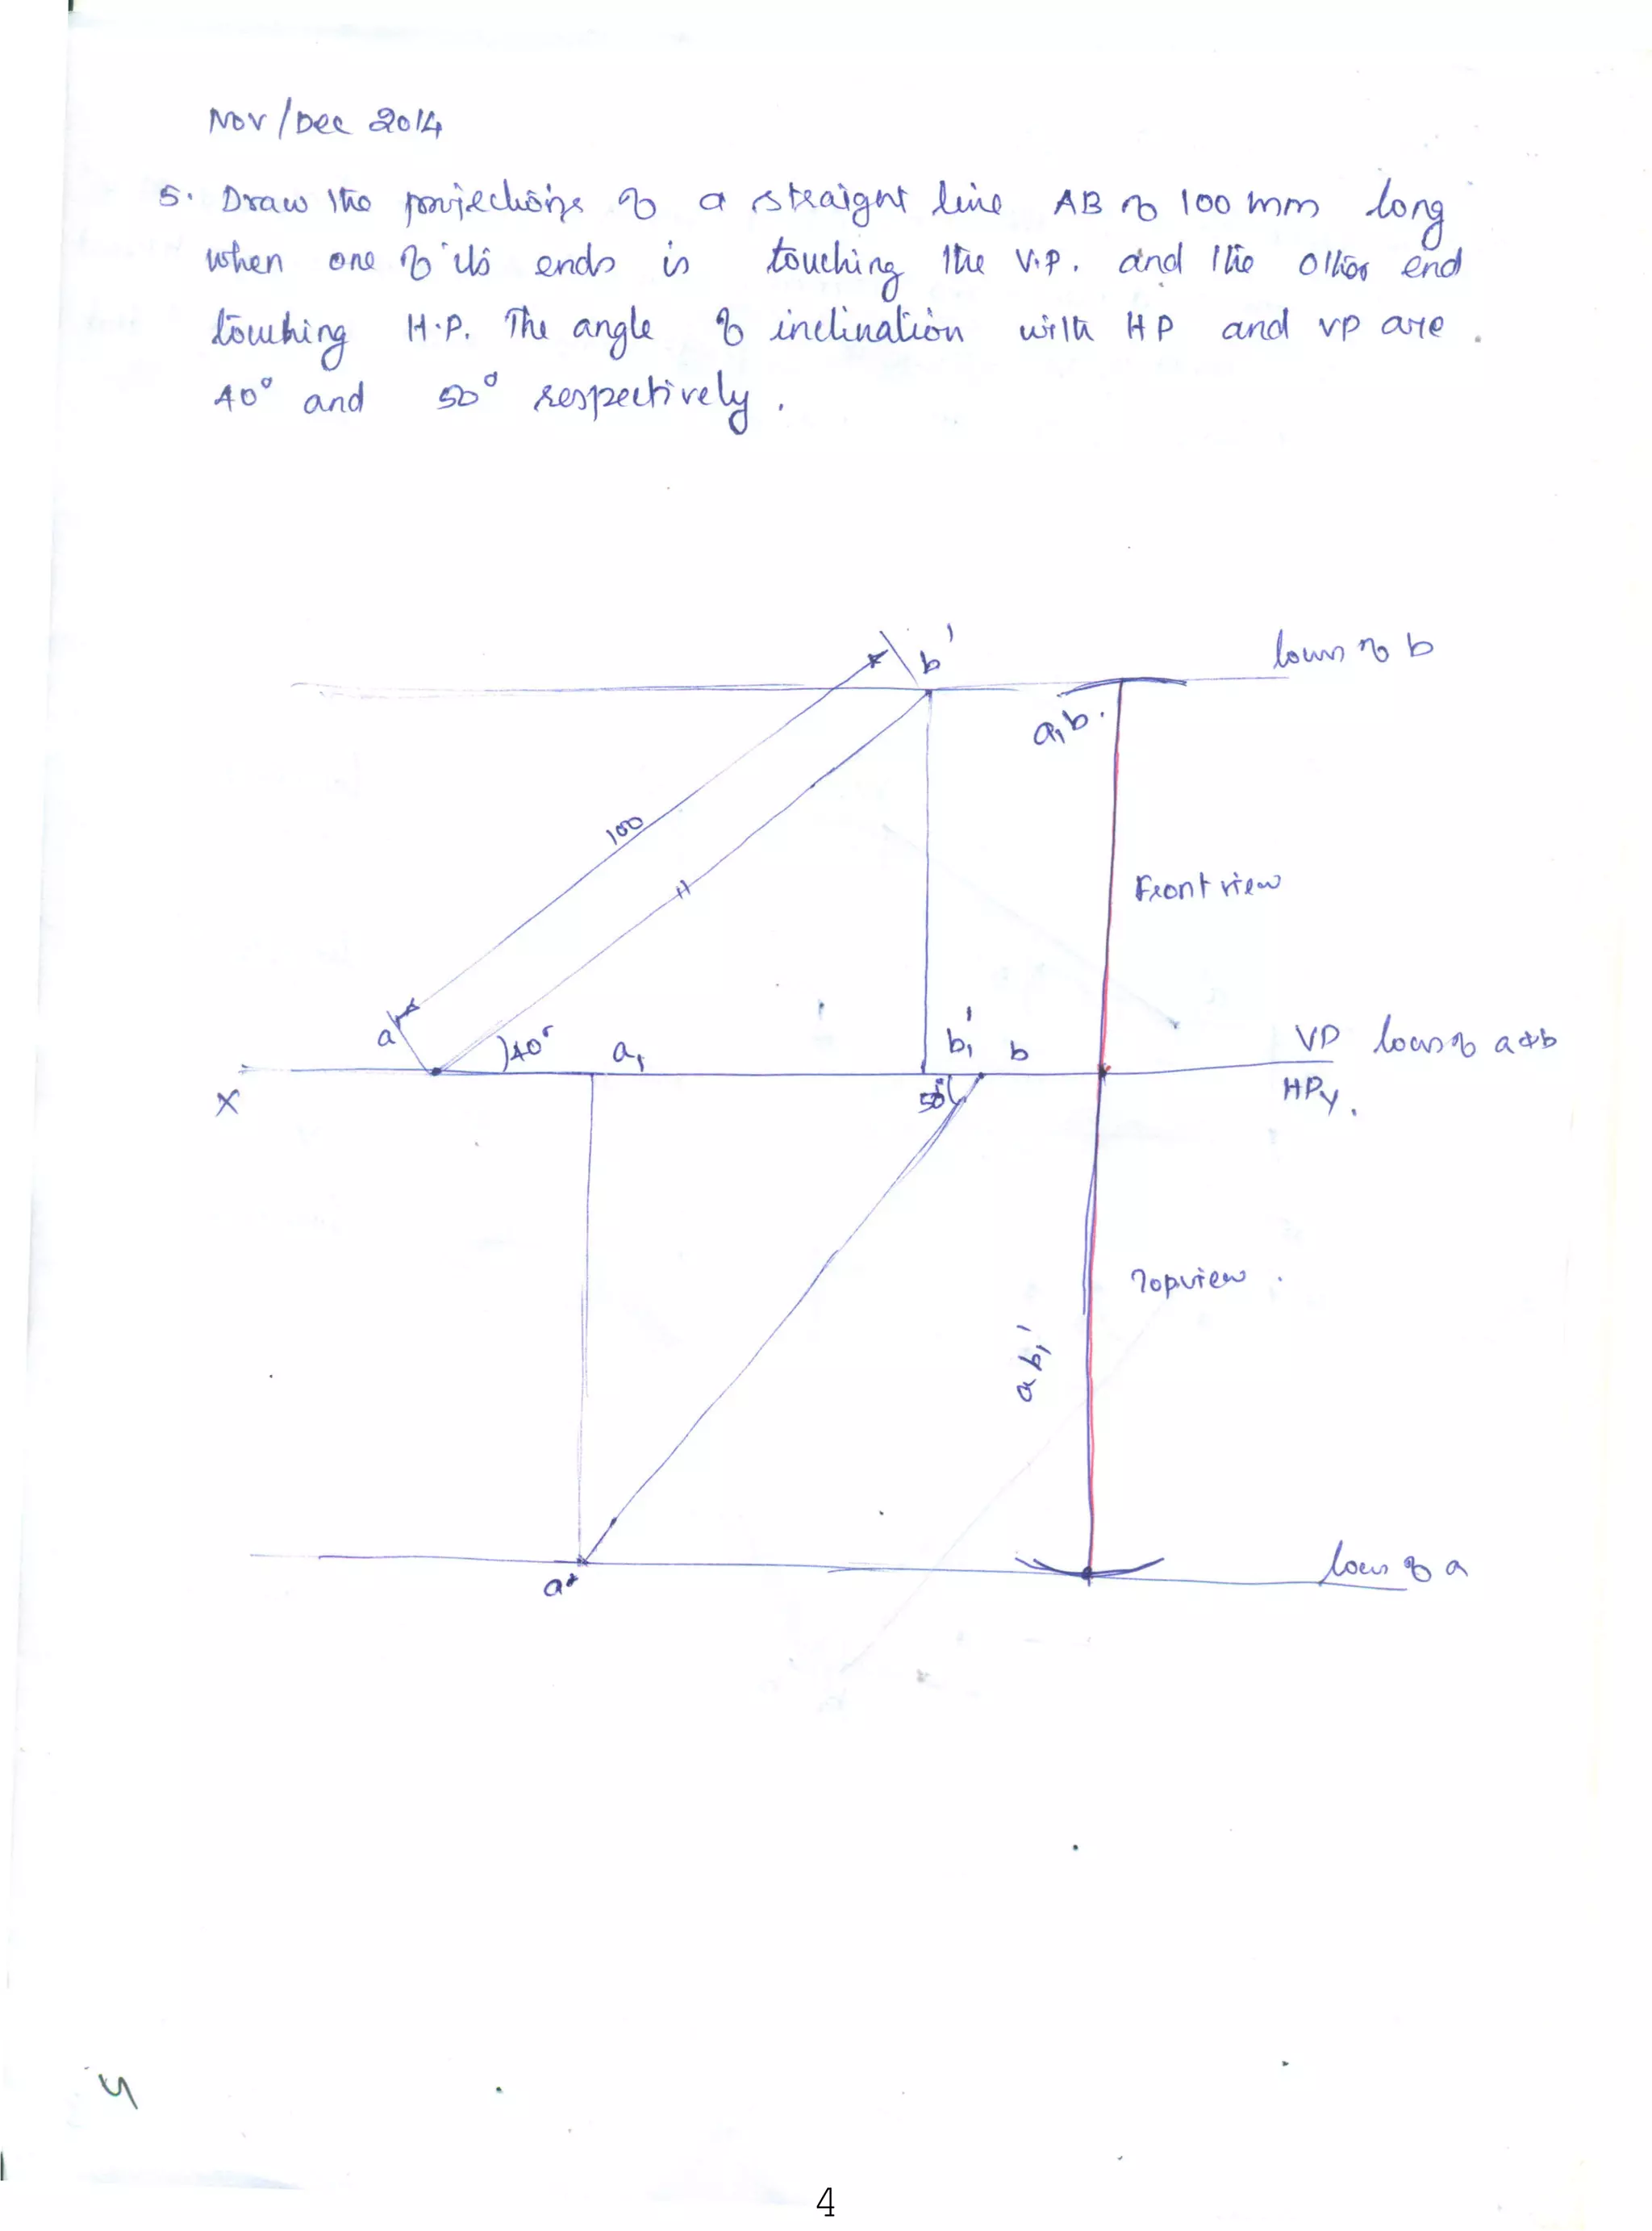 Nov/Dec 2014
5. Draw the projections of a straight line AB of 100 mm long
when one of its ends is touching the V.P. and the other end
touching H.P. The angle of inclination with HP and VP are
40° and 50° respectively.
locus of b
b'
a,b.
100
Front view
a'
40°
a1
b1'
b
VP locus of a & b
X
50°
HP Y.
Topview.
a b1'
a
locus of a
4
4